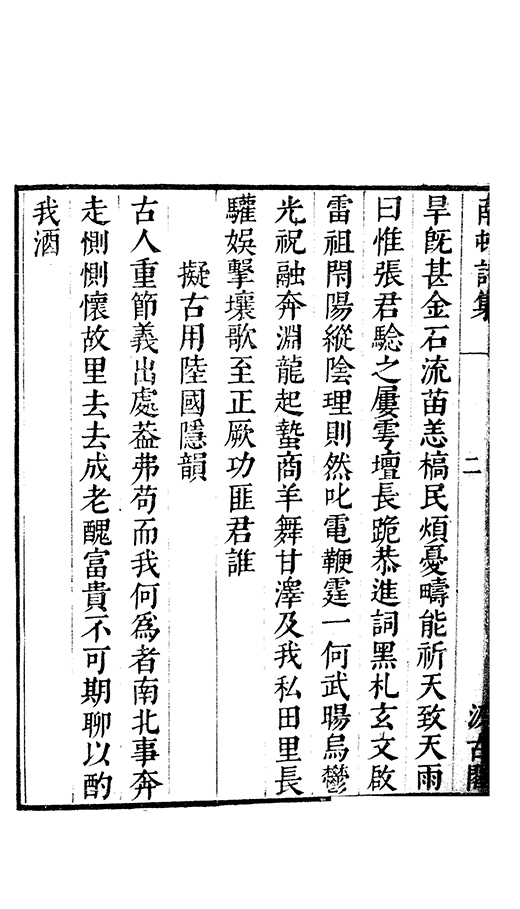 二
旱旣甚金石流苗恙槁民煩憂疇能祈天致天雨
曰惟張君騐之屢雩壇長跪恭進詞黑札玄文啟
雷祖閇陽縱陰理則然叱電鞭霆一何武暘烏鬱
光祝融奔淵龍起蟄商羊舞甘澤及我私田里長
驩娛擊壤歌至正厥功匪君誰
擬古用陸國隱韻
古人重節義出處葢弗苟而我何爲者南北事奔
走惻惻懷故里去去成老醜富貴不可期聊以酌
我酒